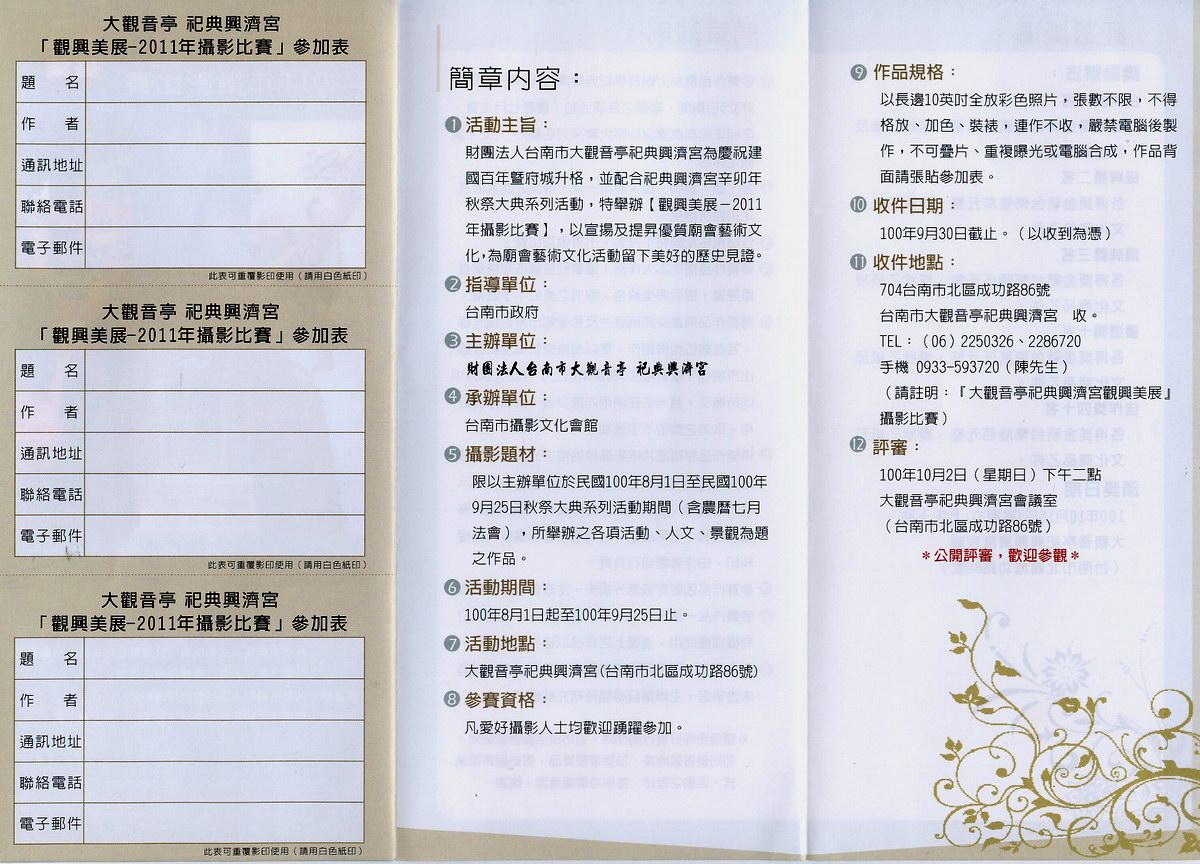 大觀音亭 祀典興濟宮
「觀興美展-2011年攝影比賽」參加表
題 名
作 者
通訊地址
聯絡電話
電子郵件
此表可重覆影印使用(請用白色紙印)
大觀音亭 祀典興濟宮
「觀興美展-2011年攝影比賽」參加表
題 名
作 者
通訊地址
聯絡電話
電子郵件
此表可重覆影印使用(請用白色紙印)
大觀音亭 祀典興濟宮
「觀興美展-2011年攝影比賽」參加表
題 名
作 者
通訊地址
聯絡電話
電子郵件
此表可重覆影印使用(請用白色紙印)
簡章内容：
❶活動主旨：
財團法人台南市大觀音亭祀典興濟宮為慶祝建
國百年暨府城升格，並配合祀典興濟宮辛卯年
秋祭大典系列活動，特舉辦【觀興美展－2011
年攝影比賽】，以宣揚及提昇優質廟會藝術文
化，為廟會藝術文化活動留下美好的歷史見證。
❷指導單位：
台南市政府
❸主辦單位：
財團法人台南市大觀音亭 祀典興濟宮
❹承辦單位：
台南市攝影文化會館
❺攝影題材：
限以主辦單位於民國100年8月1日至民國100年
9月25日秋祭大典系列活動期間（含農曆七月
法會），所舉辦之各項活動、人文、景觀為題
之作品。
❻活動期間：
100年8月1日起至100年9月25日止。
❼活動地點：
大觀音亭祀典興濟宮(台南市北區成功路86號)
❽參賽資格：
凡愛好攝影人士均歡迎踴躍參加。
❾作品規格：
以長邊10英吋全放彩色照片，張數不限，不得
格放、加色、裝裱，連作不收，嚴禁電腦後製
作，不可疊片、重複曝光或電腦合成，作品背
面請張貼參加表。
❿收件日期：
100年9月30日截止。（以收到為憑）
⓫收件地點：
704台南市北區成功路86號
台南市大觀音亭祀典興濟宮 收。
TEL：（06）2250326、2286720
手機 0933-593720（陳先生）
（請註明：『大觀音亭祀典興濟宮觀興美展』
攝影比賽）
⓬評審：
100年10月2日（星期日）下午二點
大觀音亭祀典興濟宮會議室
（台南市北區成功路86號）
＊公開評審，歡迎參觀＊